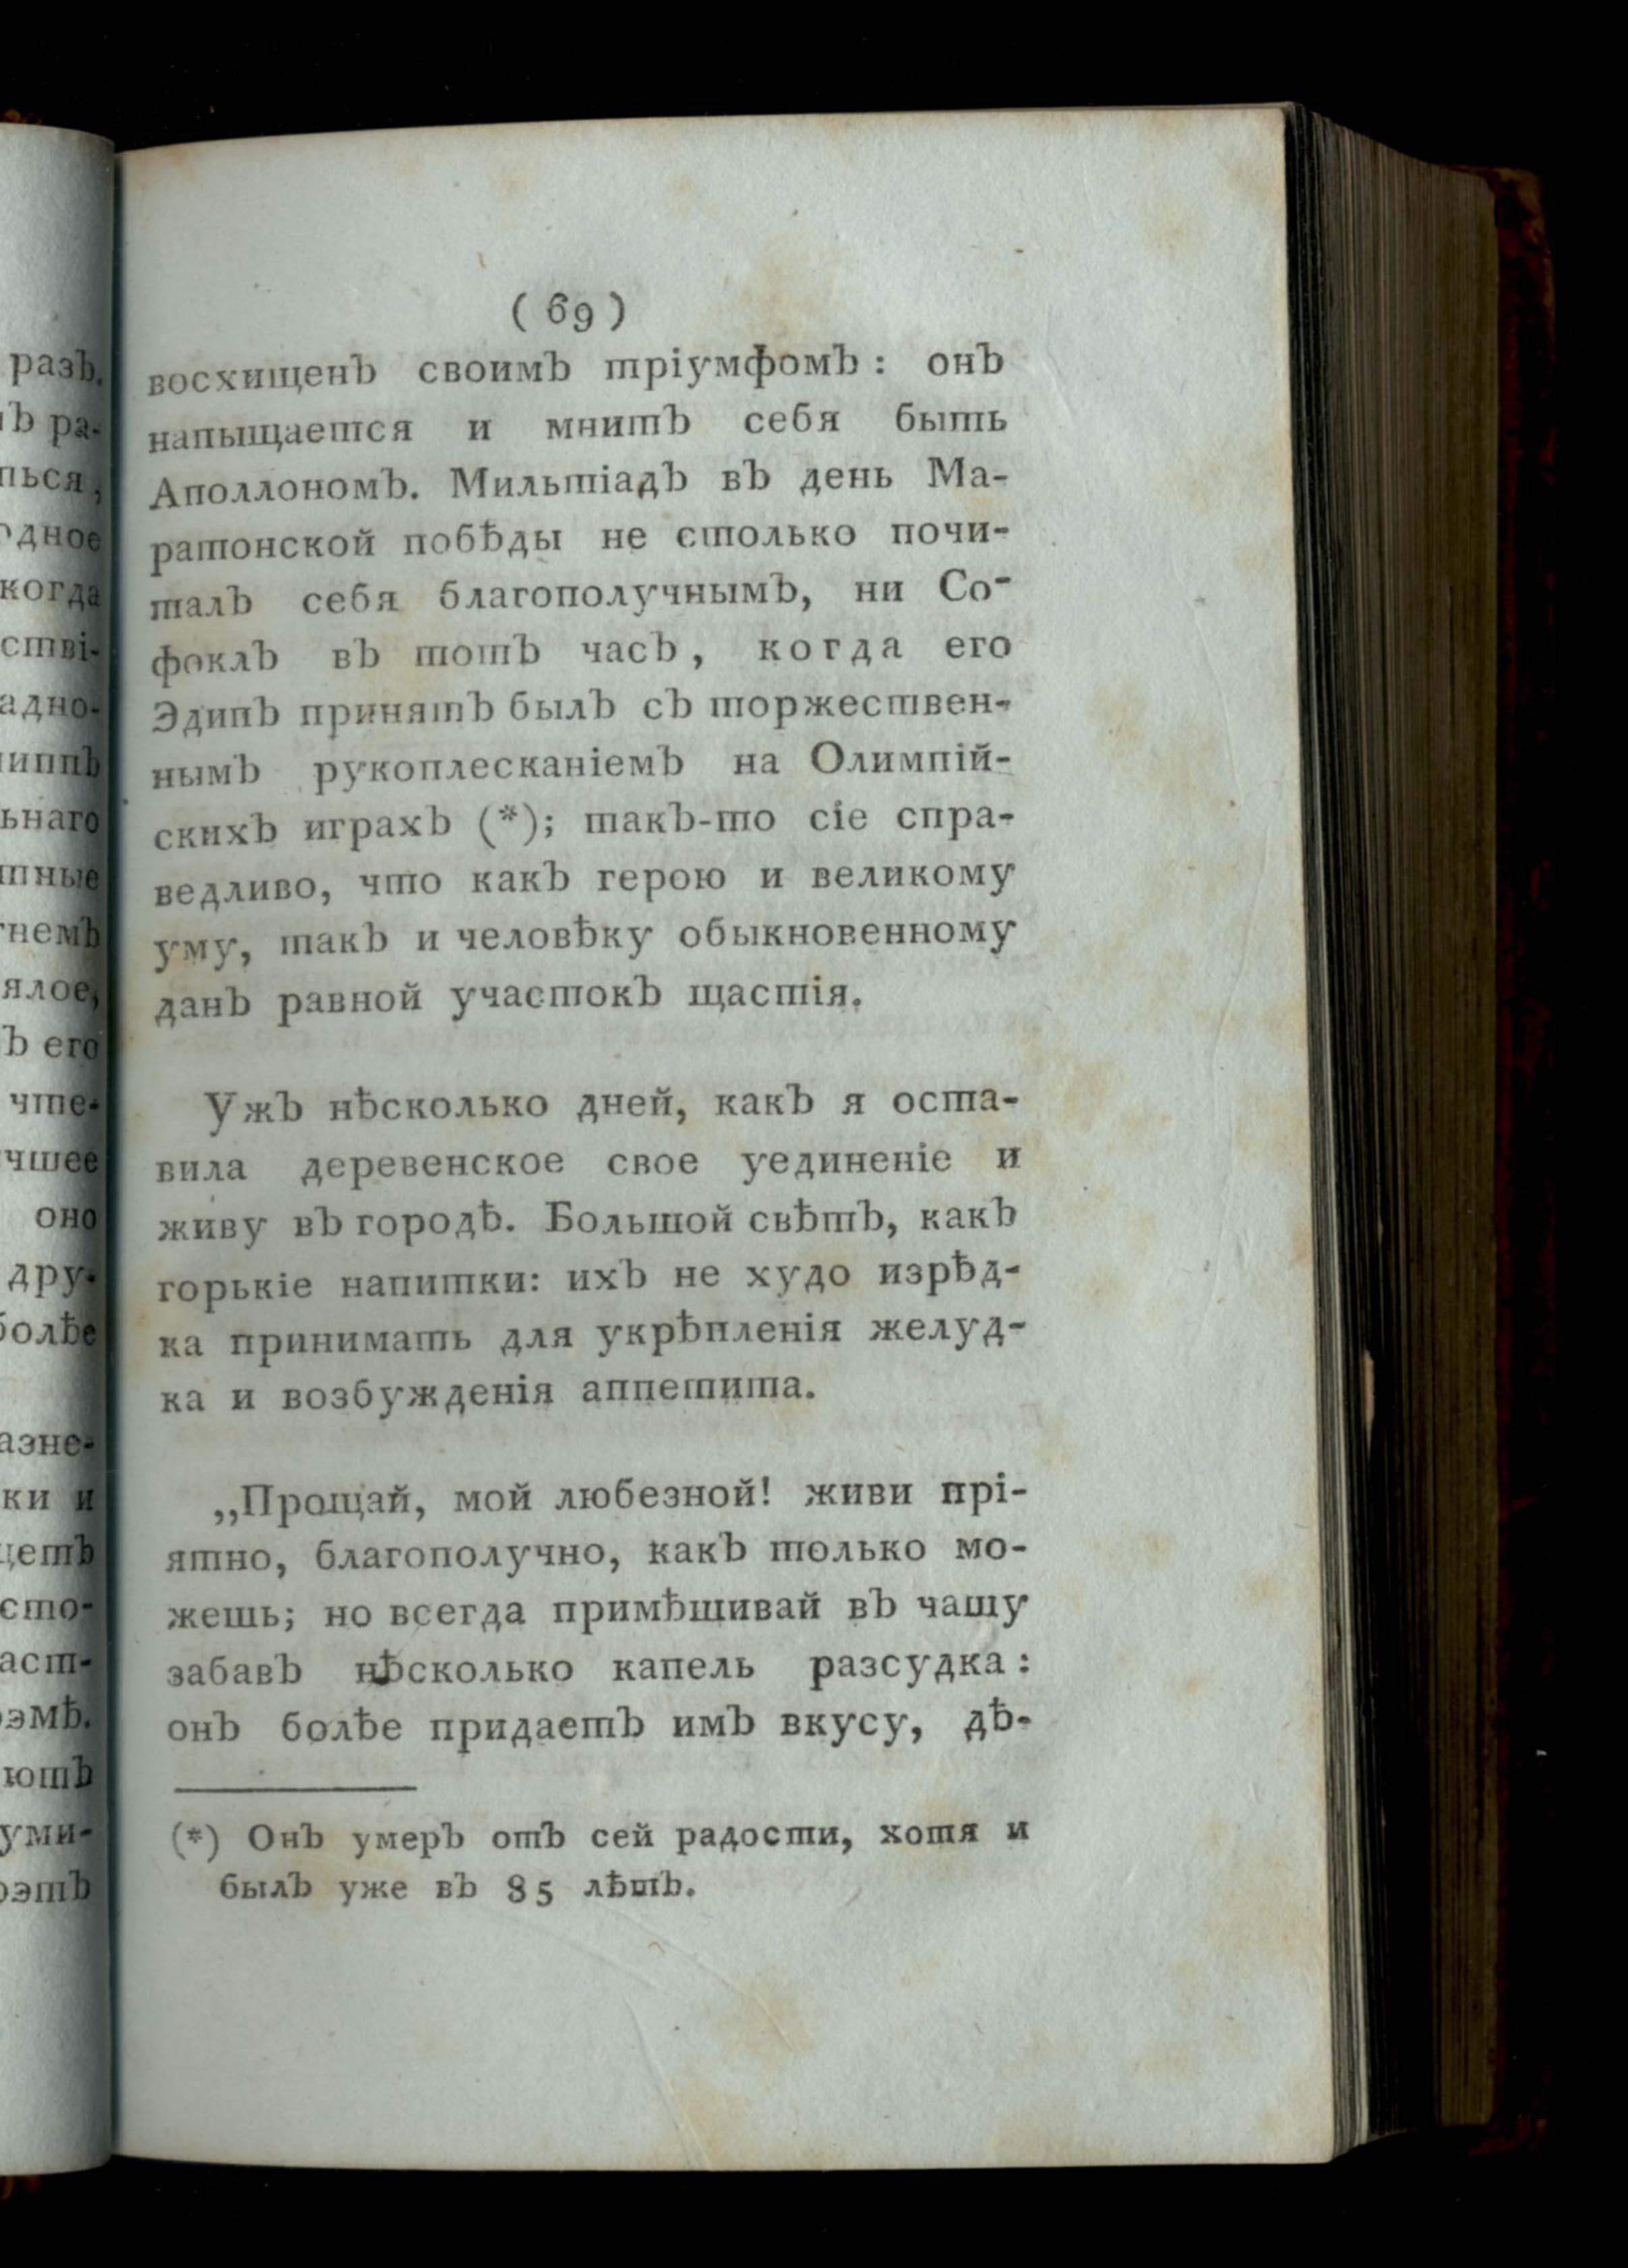 ( 69 )
восхищенъ своимъ тріумфомъ: онъ
напыщается и мнитъ себя быть
Аполлономъ. Мильтіадъ въ день Ма-
ратонской побѣды не столько почи-
талъ себя благополучнымъ, ни Со-
фоклъ въ тотъ часъ, когда его
Эдипъ принятъ былъ съ торжествен-
нымъ рукоплесканіемъ на Олимпій-
скихъ играхъ (*); такъ-то сіе спра-
ведливо, что какъ герою и великому
уму, такъ и человѣку обыкновенному
данъ равной участокъ щастія.
Ужъ нѣсколько дней, какъ я оста-
вила деревенское свое уединеніе и
живу въ городѣ. Большой свѣтъ, какъ
горькіе напитки: ихъ не худо изрѣд-
ка принимать для укрѣпленія желуд-
ка и возбужденія аппетита.
„Прощай, мой любезной! живи прі-
ятно, благополучно, какъ только мо-
жешь; но всегда примѣшивай въ чашу
забавъ нѣсколько капель разсудка:
онъ болѣе придаетъ имъ вкусу, дѣ-
(*) Онъ умеръ отъ сей радости, хотя и
былъ уже въ 85 лѣтъ.